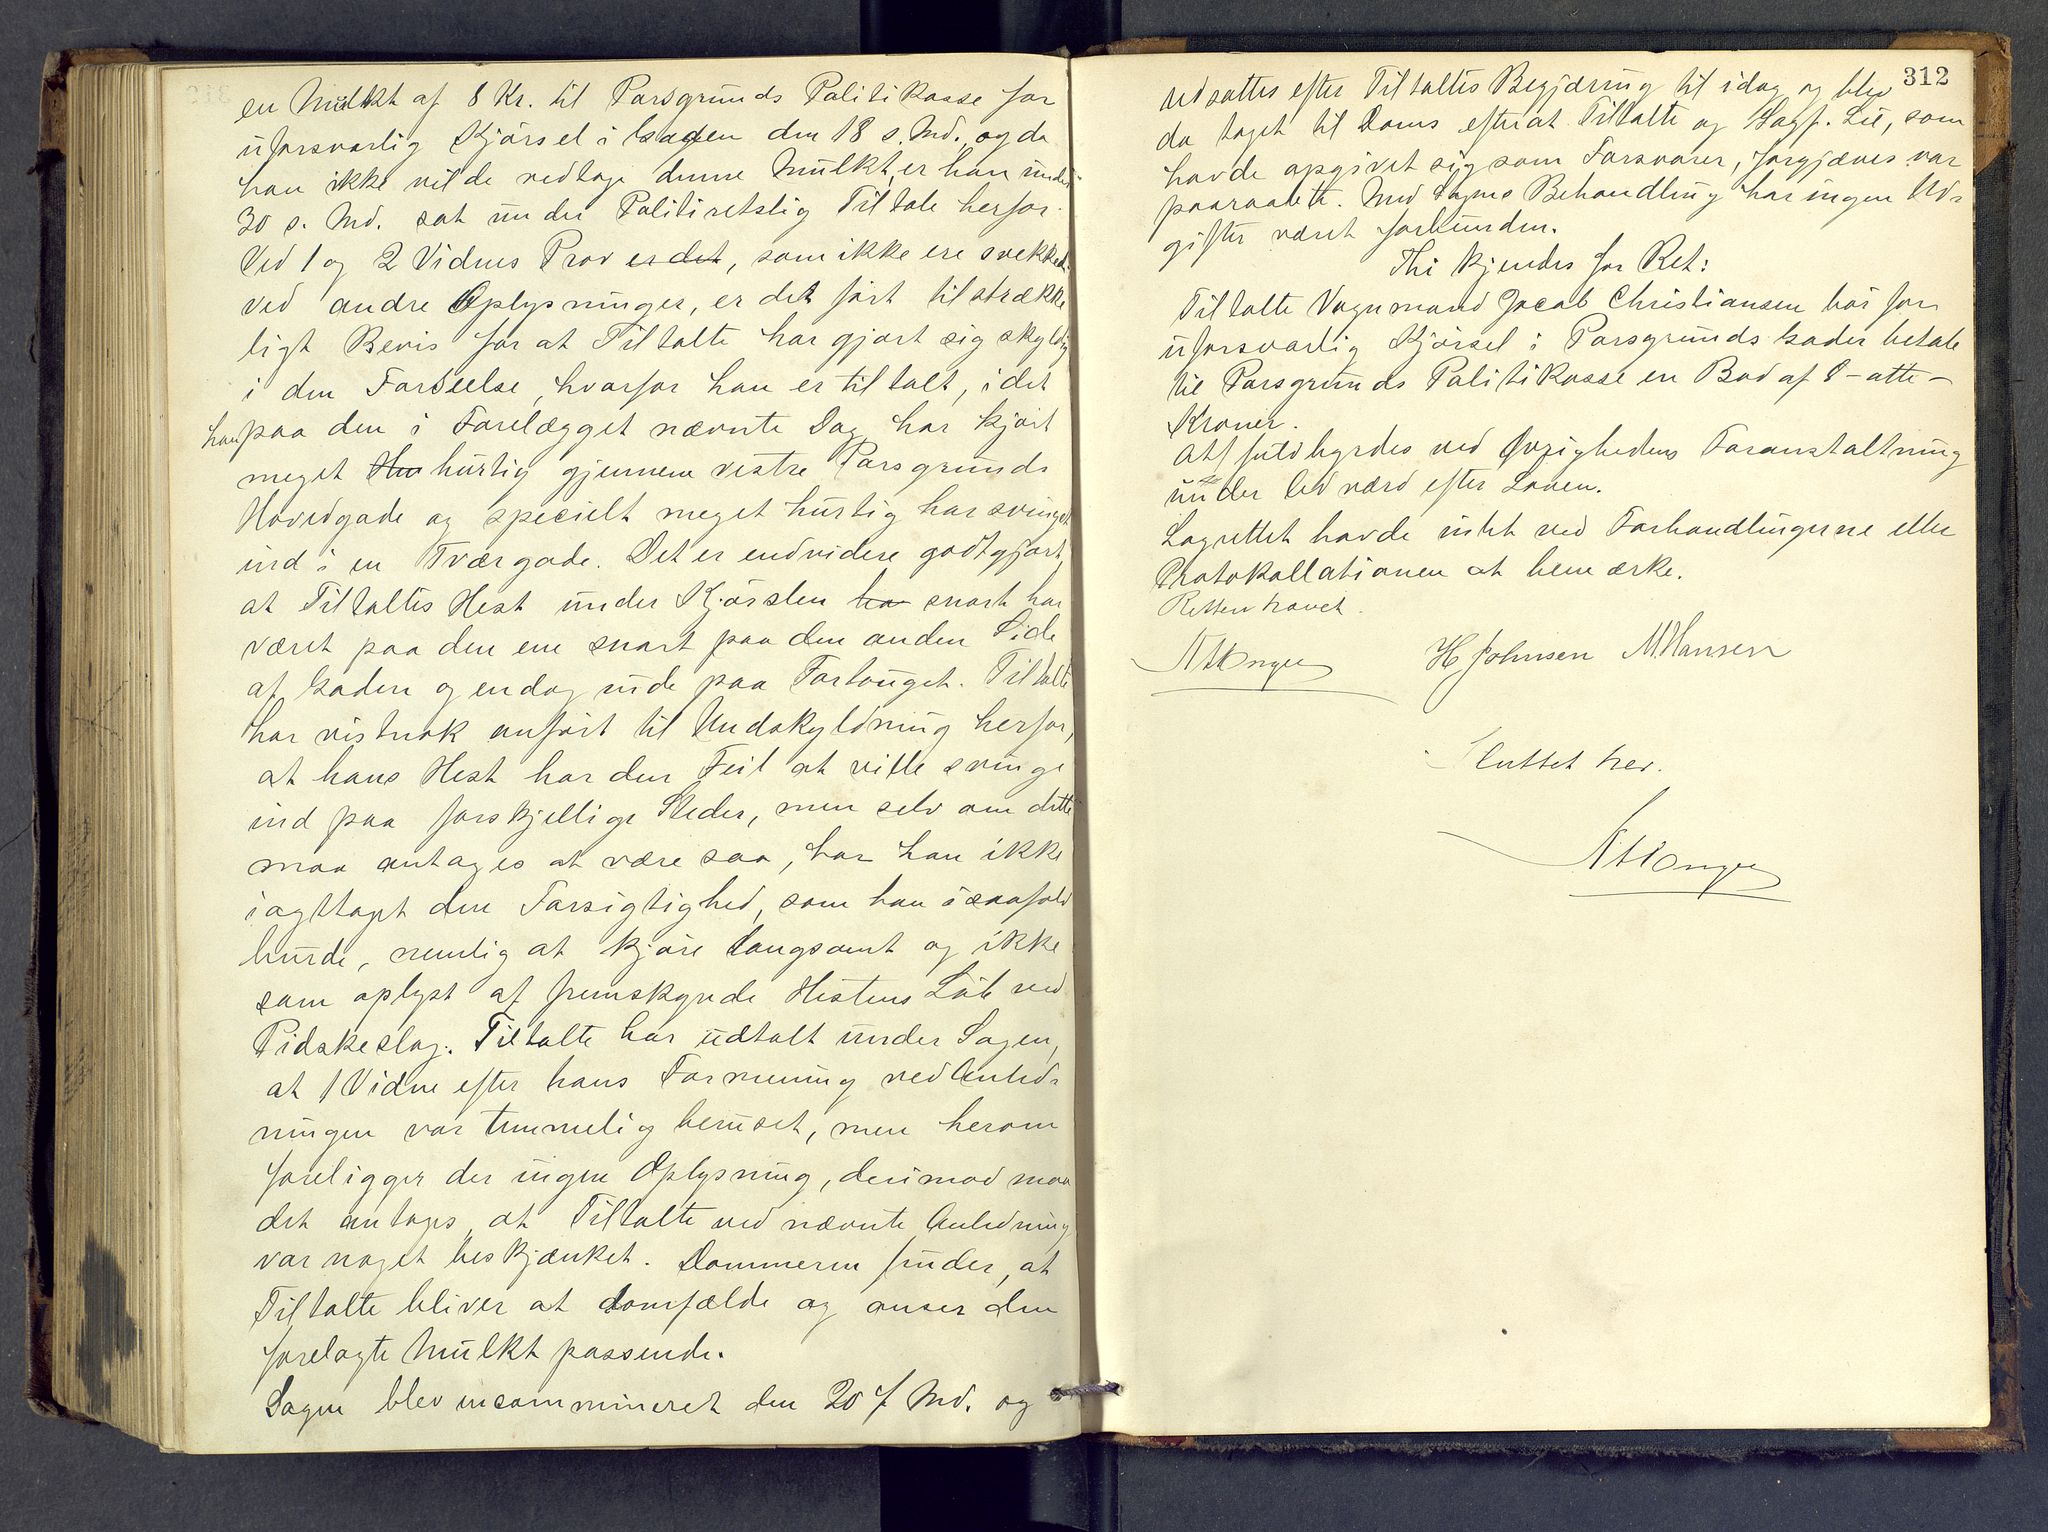 en Mulkt af 8 Kr. til Porsgrunds Politikasse for
uforsvarlig Kjörsel i Gaden den 18 s. Md., og da
han ikke vilde vedtage denne Mulkt, er han under
30 s. Md. sat under Politiretslig Tiltale herfor.
Ved 1 og 2 Vidnes Prov er det, som ikke ere svekkede
ved andre Oplysninger, er det fört tilstrække
ligt Bevis for at Tiltalte har gjort sig skyldig
i den Forseelse, hvorfor han er tiltalt, idet
han paa den i Forelægget nævnte Dag har kjört
meget hurtig gjennem vestre Porsgrunds
Hovedgade og specielt meget hurtig har svinget
ind i en Tværgade. Det er endvidere godtgjort,
at Tiltaltes Hest under Kjörslen ha snart har
været paa den ene snart paa den anden Side
af Gaden og endog inde paa Fortouget. Tiltalte
har vistnok anført til Undskyldning herfor,
at hans Hest har den Feil at ville svinge
ind paa forskjellige Steder, men selv om dette
maa antages at være saa, har han ikke
iagttaget den Forsigtighed, som han isaafald
burde, nemlig at kjöre langsomt og ikke
som oplyst at fremskynde Hestens Löb ved
Pidskeslag. Tiltalte har udtalt under Sagen,
at 1 Vidne efter hans Formening ved Anled-
ningen var temmelig beruset, men herom
foreligger der ingen Oplysning, derimod maa
det antages, at Tiltalte ved nævnte Anledning
var noget beskjænket. Dommeren finder, at
Tiltalte bliver at domfælde og anser den
forelagte Mulkt passende.
Sagen blev incammineret den 20 f. Md. og
312
udsattes efter Tiltaltes Begjæring til idag og blev
da taget til Doms efterat Tiltalte og Sagf. Lie, som
havde opgivet sig som Forsvarer, forgjæves var
paaraabt. Med Sagens Behandling har ingen Ud-
gifter været forbunden.
Thi kjendes for Ret:
Tiltalte Vognmand Jacob Christiansen bör for
uforsvarlig Kjörsel i Porsgrunds Gader betale
til Porsgrunds Politikasse en Bod af 8 - otte -
Kroner.
At fuldbyrdes ved Øvrighedens Foranstaltning
under Udværd efter Loven.
Lagrettet havde intet ved Forhandlingerne eller
Protokollationen at bemærke.
Retten hævet.
H Johnsen M. Hansen
Sluttet her.